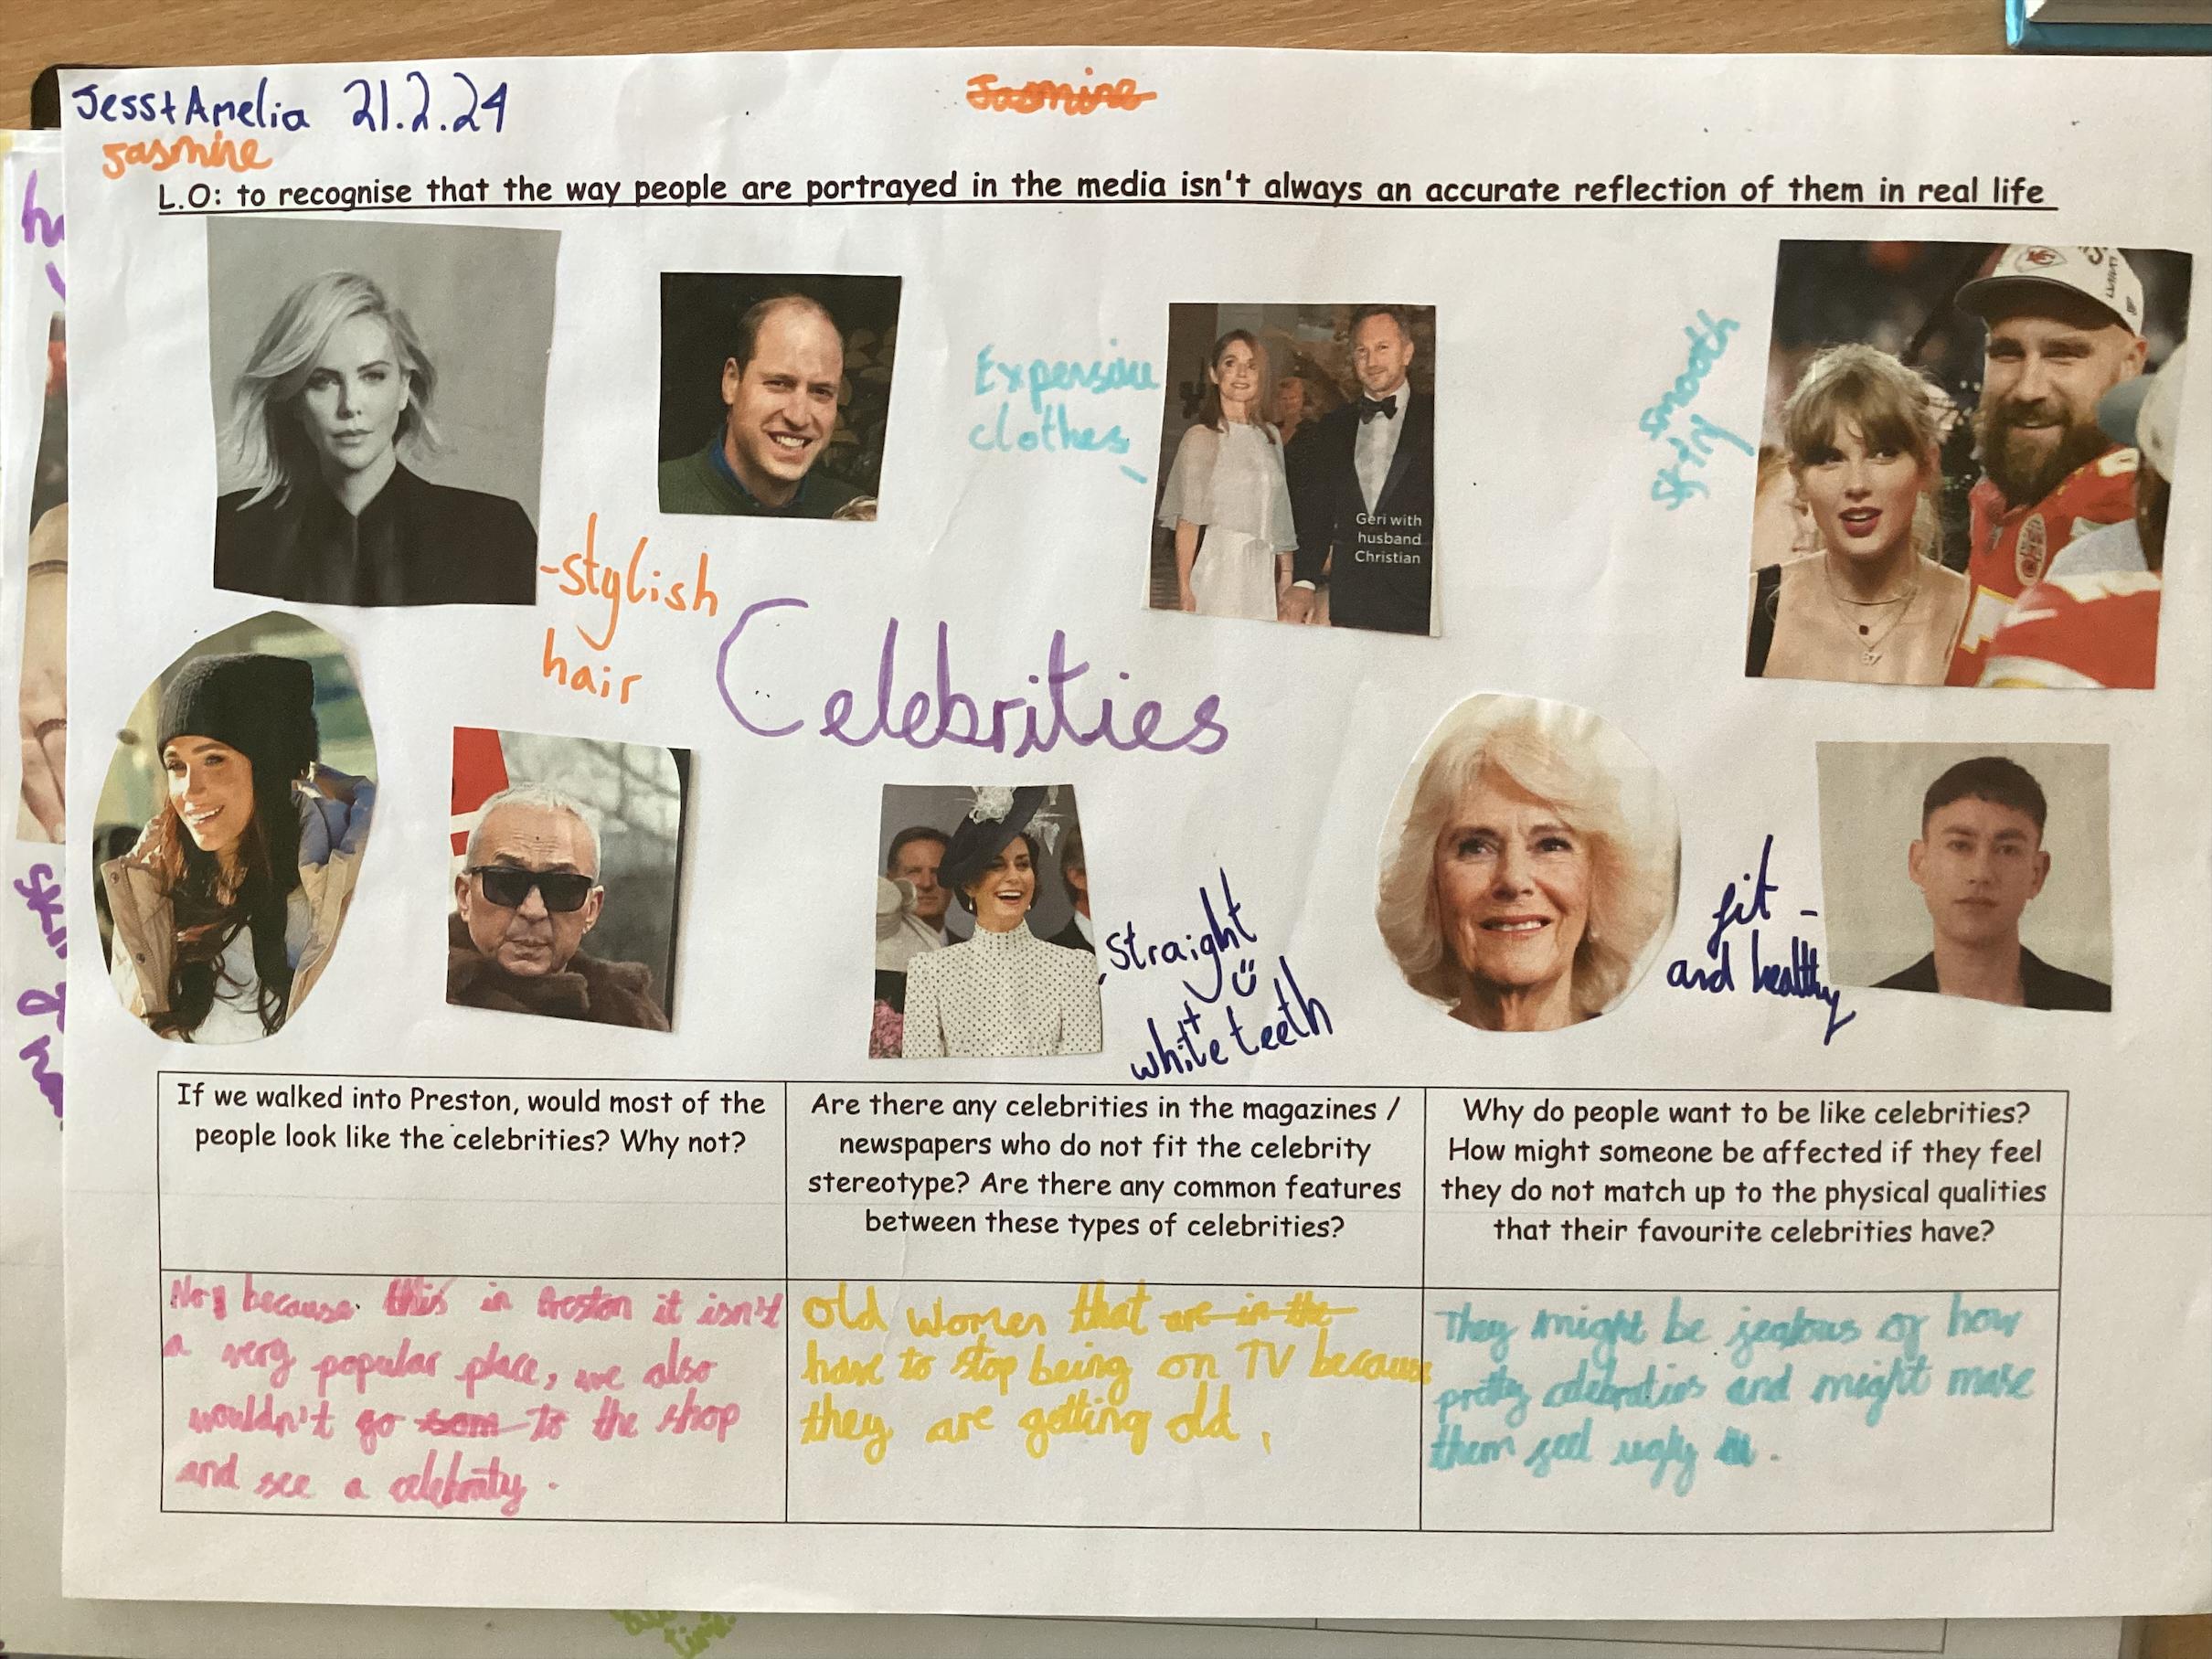 Jess + Amelia 21.2.24
Jasmine
Jasmine
L.O: to recognise that the way people are portrayed in the media isn't always an accurate reflection of them in real life
Expensive
clothes
smooth
Geri with
husband
Christian
-stylish
hair
Celebrities
straight
+
white teeth
fit -
and healthy
If we walked into Preston, would most of the
people look like the celebrities? Why not?
Are there any celebrities in the magazines /
newspapers who do not fit the celebrity
stereotype? Are there any common features
between these types of celebrities?
Why do people want to be like celebrities?
How might someone be affected if they feel
they do not match up to the physical qualities
that their favourite celebrities have?
No, because this in Preston it isn't
a very popular place, we also
wouldn't go som to the shop
and see a celebraty.
Old women that are in the
have to stop being on TV because
they are getting old,
They might be jealous of how
pretty celebraties and might make
them feel ugly .
time.